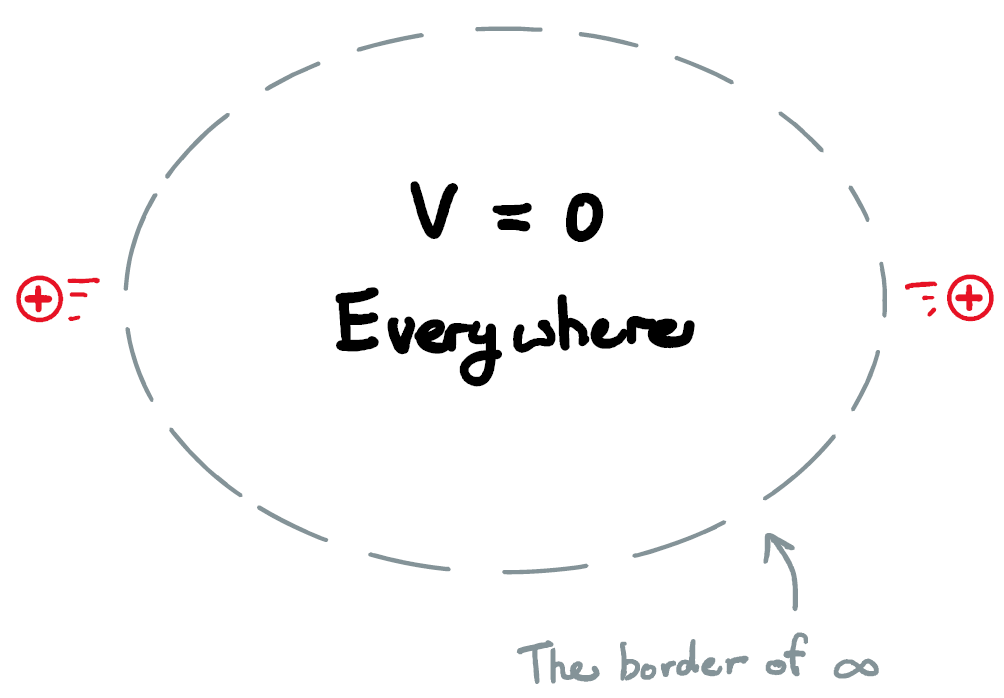 V = 0
Everywhere
+
+
The border of ∞